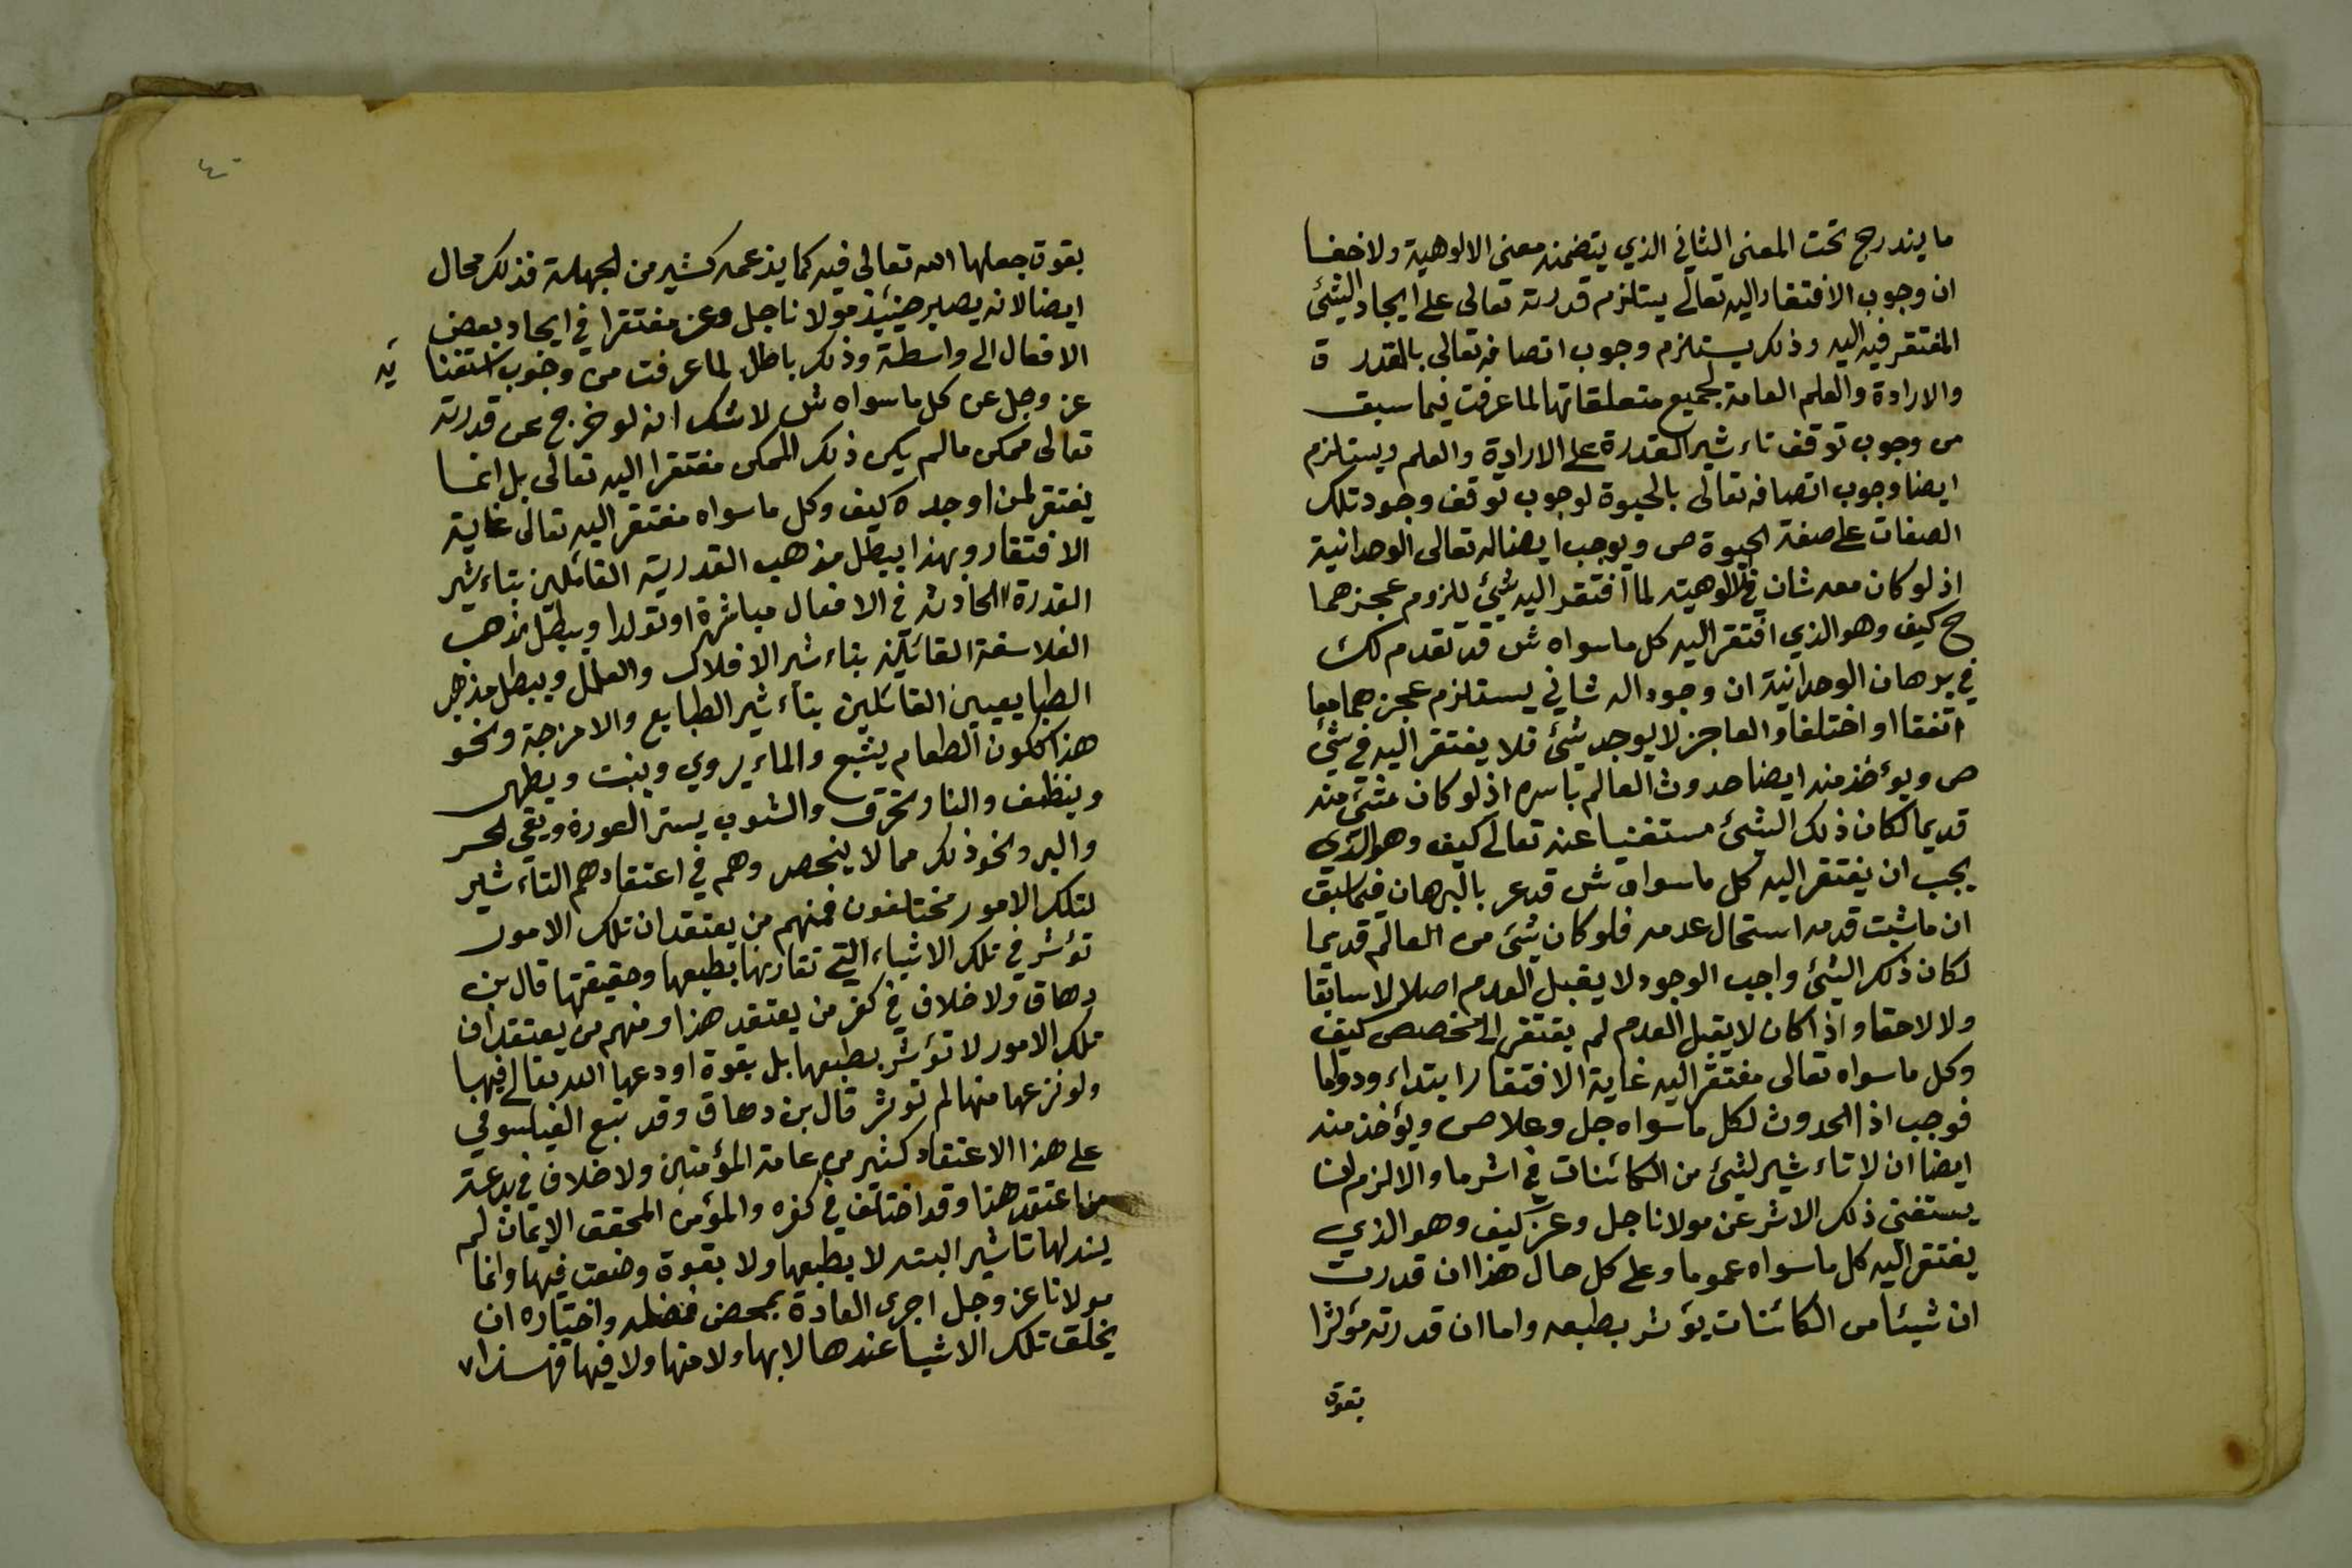 ما يندرج تحت المعنى الثاني الذي يتضمنه معنى الالوهية ولا خفا
ان وجوب الافتقار اليه تعالى يستلزم قدرته تعالى على ايجاد الشئ
المفتقر فيه اليه وذلك يستلزم وجوب اتصافه تعالى بالقدر ة
والارادة والعلم العامة لجميع متعلقاتها لما عرفت فيما سبق
من وجوب توقف تاءثير القدرة على الارادة والعلم ويستلزم
ايضا وجوب اتصافه تعالى بالحيوة لوجوب توقف وجود تلك
الصفات على صفة الحيوة ص ويوجب ايضا له تعالى الوحدانية
اذ لو كان معه ثان في الالوهية لما افتقر اليه شئ للزوم عجزهما
ح كيف وهو الذي افتقر اليه كل ما سواه ش قد تقدم لك
في برهان الوحدانية ان وجود اله ثاني يستلزم عجزهما معا
اتفقا او اختلفا والعاجز لا يوجد شئ فلا يفتقر اليه في شئ
ص ويؤخذ منه ايضا حدوث العالم باسره اذ لو كان شئ منه
قديما لكان ذلك الشئ مستغنيا عنه تعالى كيف وهو الذي
يجب ان يفتقر اليه كل ما سواه ش قد عر بالبرهان فيما سبق
ان ما ثبت قدمه استحال عدمه فلو كان شئ من العالم قديما
لكان ذلك الشئ واجب الوجود لا يقبل العدم اصلا لا سابقا
ولا لاحقا واذا كان لا يقبل العدم لم يفتقر الى مخصص كيف
وكل ما سواه تعالى مفتقر اليه غاية الافتقار ابتداء ودواما
فوجب اذا الحدوث لكل ما سواه جل وعلا ص ويؤخذ منه
ايضا ان لا تاءثير لشئ من الكائنات في اثر ما والا لزم ان
يستغني ذلك الاثر عن مولانا جل وعز كيف وهو الذي
يفتقر اليه كل ما سواه عموما وعلى كل حال هذا ان قدرت
ان شيئا من الكائنات يؤثر بطبعه واما ان قدرته مؤثرا
بقوة
بقوة جعلها الله تعالى فيه كما يزعمه كثير من الجهلة فذلك محال
ايضا لانه يصير حينئذ مولانا جل وعز مفتقرا في ايجاد بعض
الافعال الى واسطة وذلك باطل لما عرفت من وجوب استغنا ئه
عز وجل عن كل ما سواه ش لا شك انه لو خرج عن قدرته
تعالى ممكن ما لم يكن ذلك الممكن مفتقرا اليه تعالى بل انما
يفتقر لمن اوجده كيف وكل ما سواه مفتقر اليه تعالى غاية
الافتقار وبهذا يبطل مذهب القدرية القائلين بتاءثير
القدرة الحادثه في الافعال مباشرة او تولدا ويبطل مذهب
الفلاسفة القائلين بتاءثير الافلاك والعلل ويبطل مذهب
الطبايعيين القائلين بتاءثير الطبايع والامزجة ونحو
هذا ككون الطعام يشبع والماء يروي وينبت ويطهر
وينظف والنار تحرق والثوب يستر العورة ويقي الحر
والبرد ونحو ذلك مما لا ينحصر وهم في اعتقادهم التاءثير
لتلك الامور مختلفون فمنهم من يعتقد ان تلك الامور
تؤثر في تلك الاشياء التي تقارنها بطبعها وحقيقتها قال بن
دهاق ولا خلاف في كفر من يعتقد هذا ومنهم من يعتقد ان
تلك الامور لا تؤثر بطبعها بل بقوة اودعها الله تعالى فيها
ولو نزعها منها لم تؤثر قال بن دهاق وقد تبع الفيلسوفي
على هذا الاعتقاد كثير من عامة المؤمنين ولا خلاف في بدعة
من اعتقد هذا وقد اختلف في كفره والمؤمن المحقق الايمان لم
يسند لها تاثير البته لا بطبعها ولا بقوة وضعت فيها وانما
مولانا عز وجل اجرى العادة بمحض فضله واختياره ان
يخلق تلك الاشيا عندها لا بها ولا منها ولا فيها